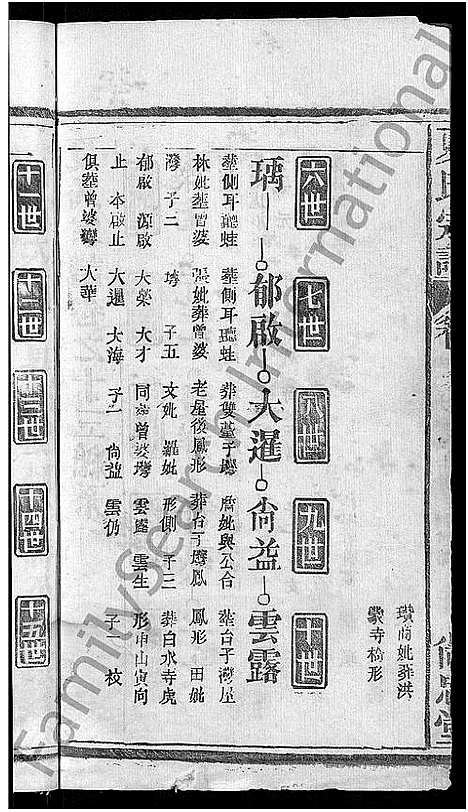 瓚商妣葬洪
蒙寺橋形
六世 七世 八世 九世 十世
瑀 郁啟 大暹 尙益 雲露
葬側耳聽蛙 葬側耳聽蛙 葬雙臺子灣 妣與公合 葬台子灣屋
林妣葬曾婆 張妣葬曾婆 老屋後鳳形 葬台子灣鳳 鳳形 田妣
灣 子二 灣 子五 文妣 羅妣 形側 子三 葬白水寺虎
郁啟 源啟 大榮 大才 同葬曾婆灣 雲露 雲生 形申山寅向
止 本啟止 大暹 大海 子一 尙益 雲仍 子一 校
俱葬曾婆灣 大華
十一世 十二世 十三世 十四世 十五世
氏宗譜 卷
堂
FamilySearch International